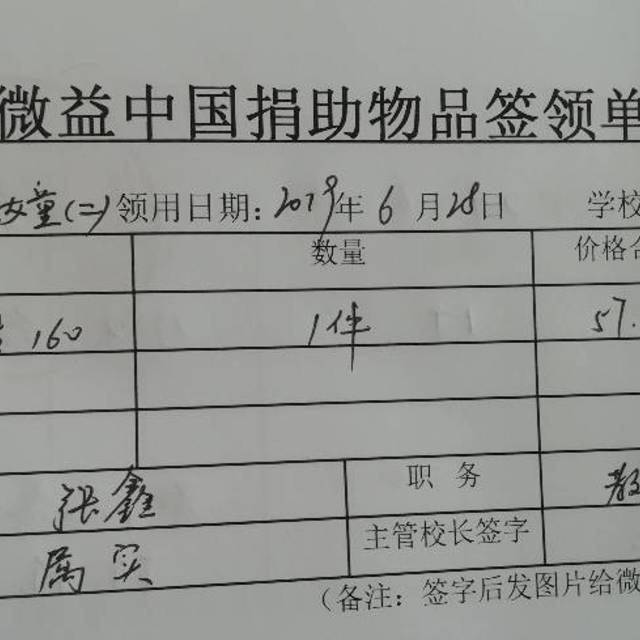 微益中国捐助物品签领单
女童(二) 领用日期：2019年6月28日 学校
数量 价格合
160 1件 57.
张鑫 职务 教
属实 主管校长签字
（备注：签字后发图片给微